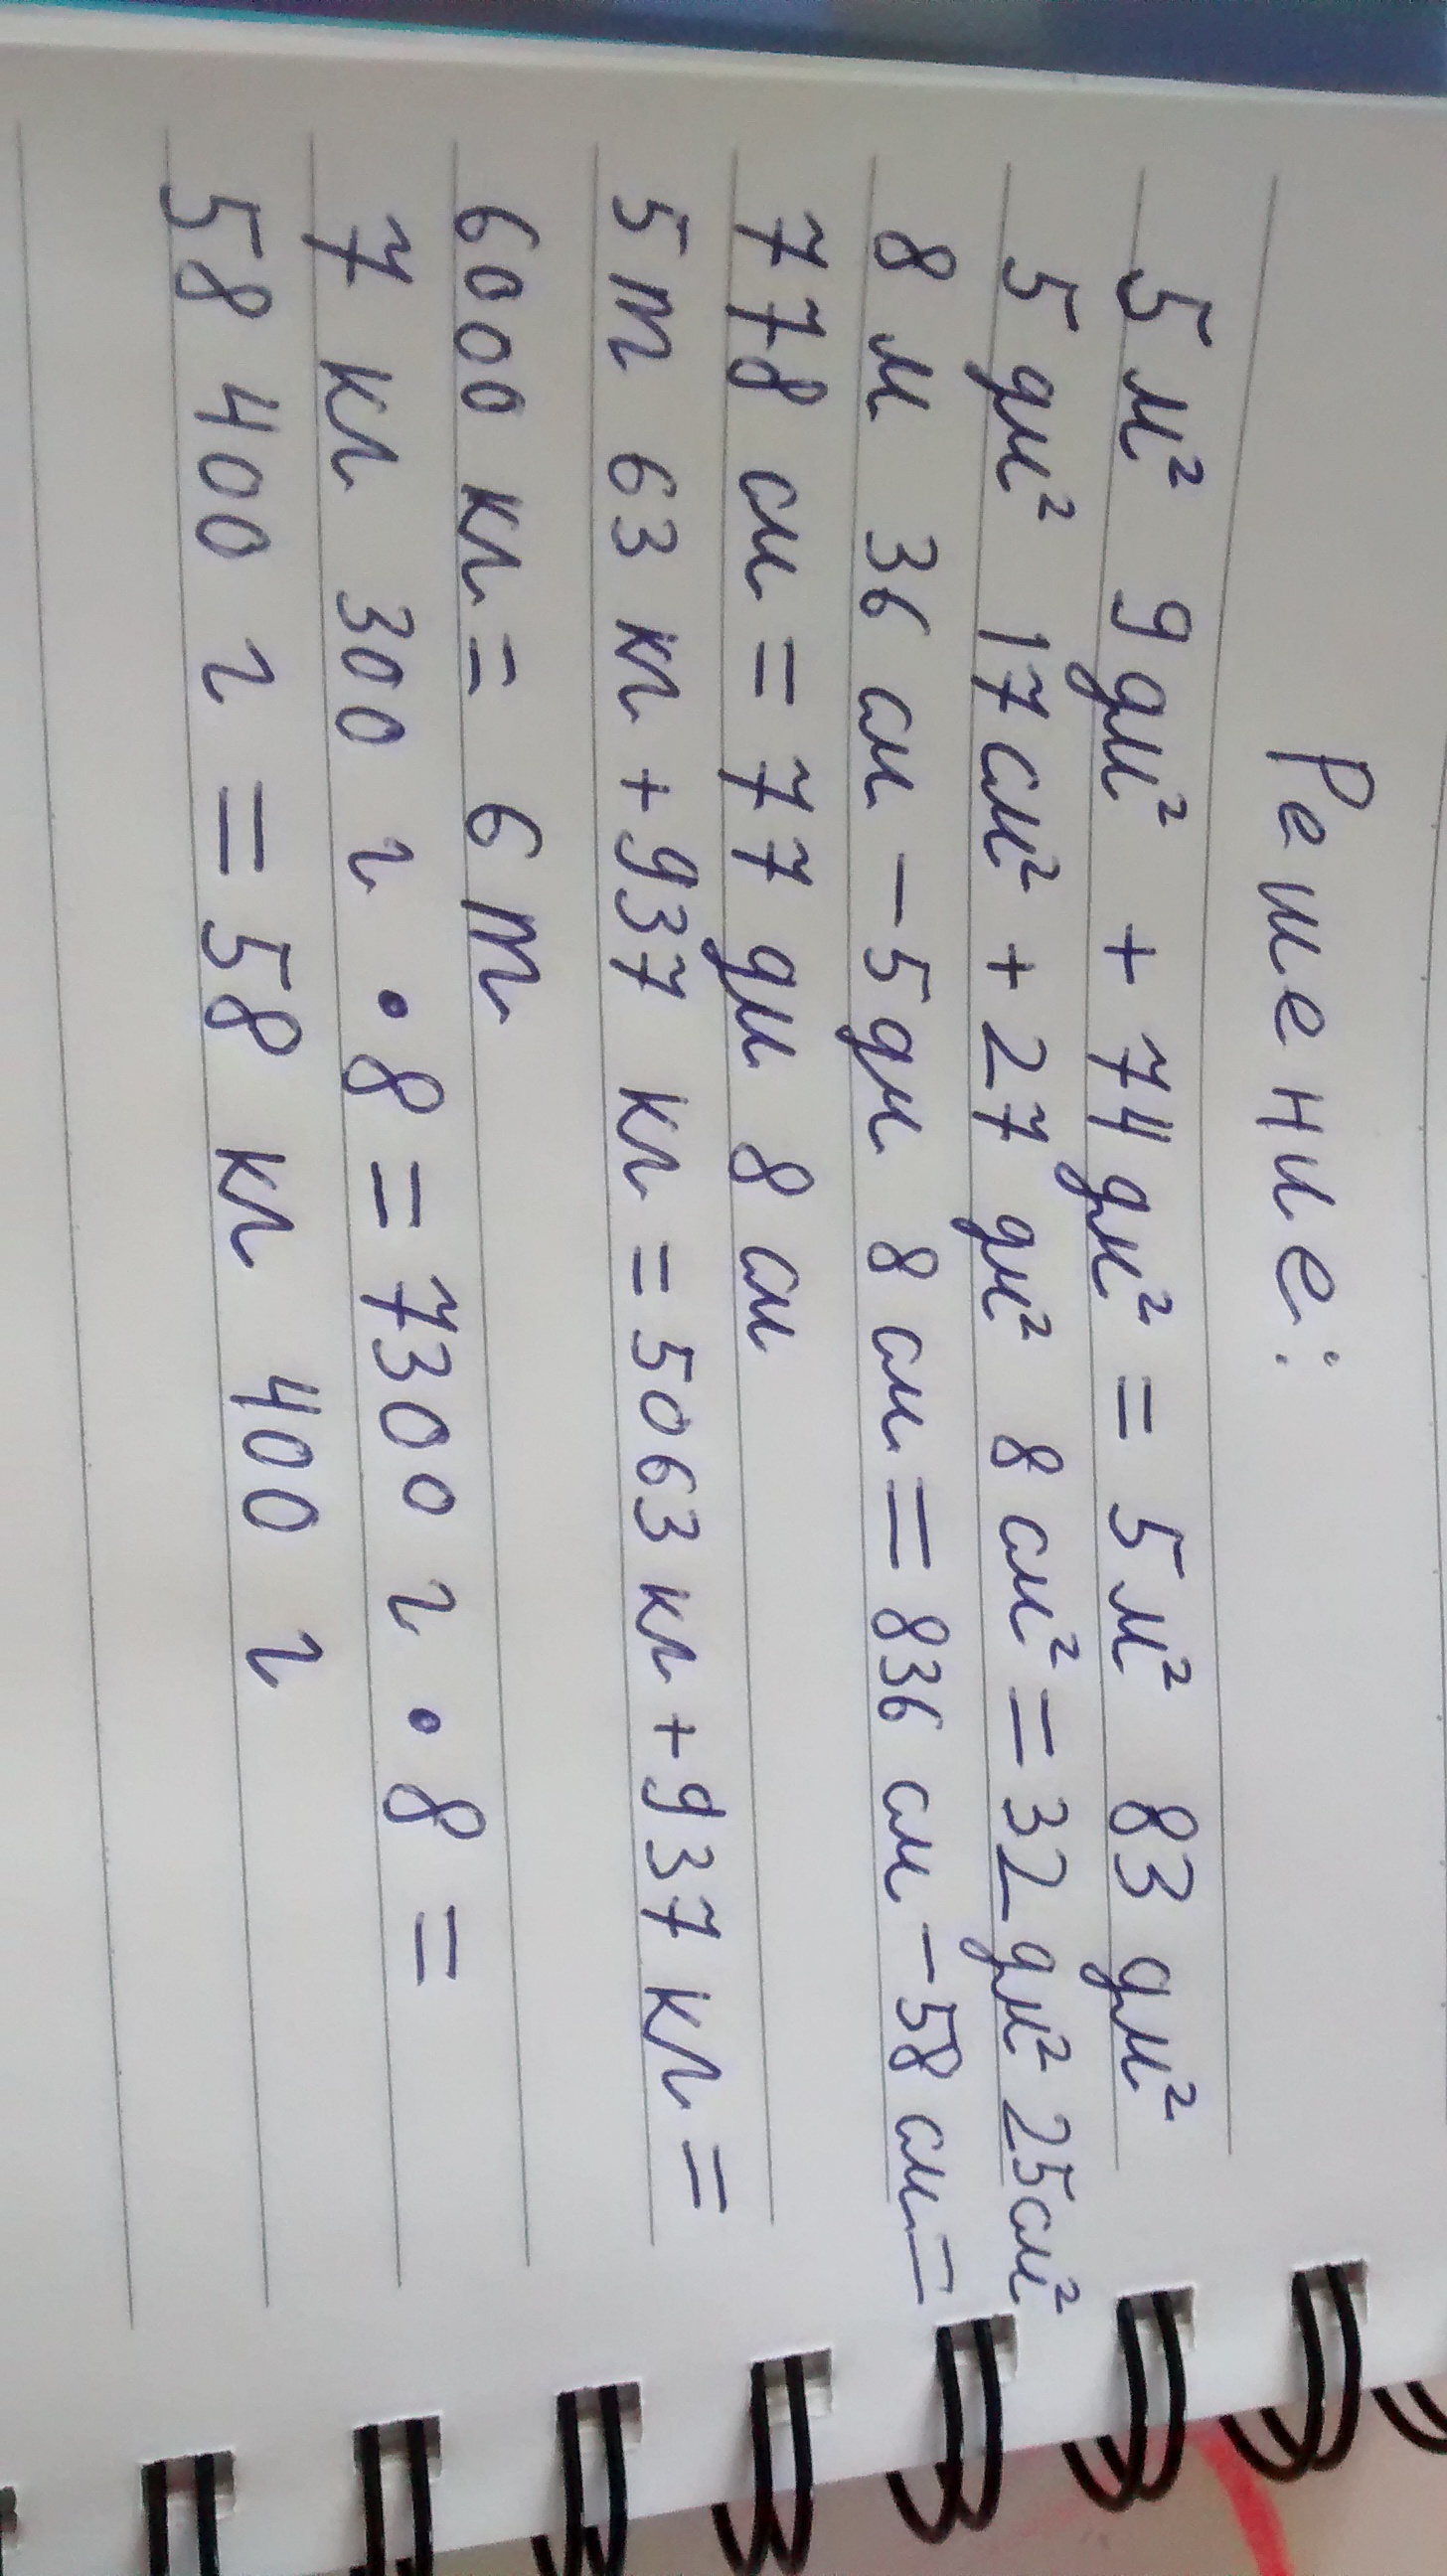 Решение:
5 м² 9 дм² + 74 дм² = 5 м² 83 дм²
5 дм² 17 см² + 27 дм² 8 см² = 32 дм² 25 см²
8 м 36 см - 5 дм 8 см = 836 см - 58 см =
778 см = 77 дм 8 см
5 т 63 кг + 937 кг = 5063 кг + 937 кг =
6000 кг = 6 т
7 кг 300 г • 8 = 7300 г • 8 =
58 400 г = 58 кг 400 г